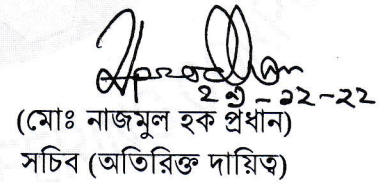 ২৯-১২-২২
(মোঃ নাজমুল হক প্রধান)
সচিব (অতিরিক্ত দায়িত্ব)